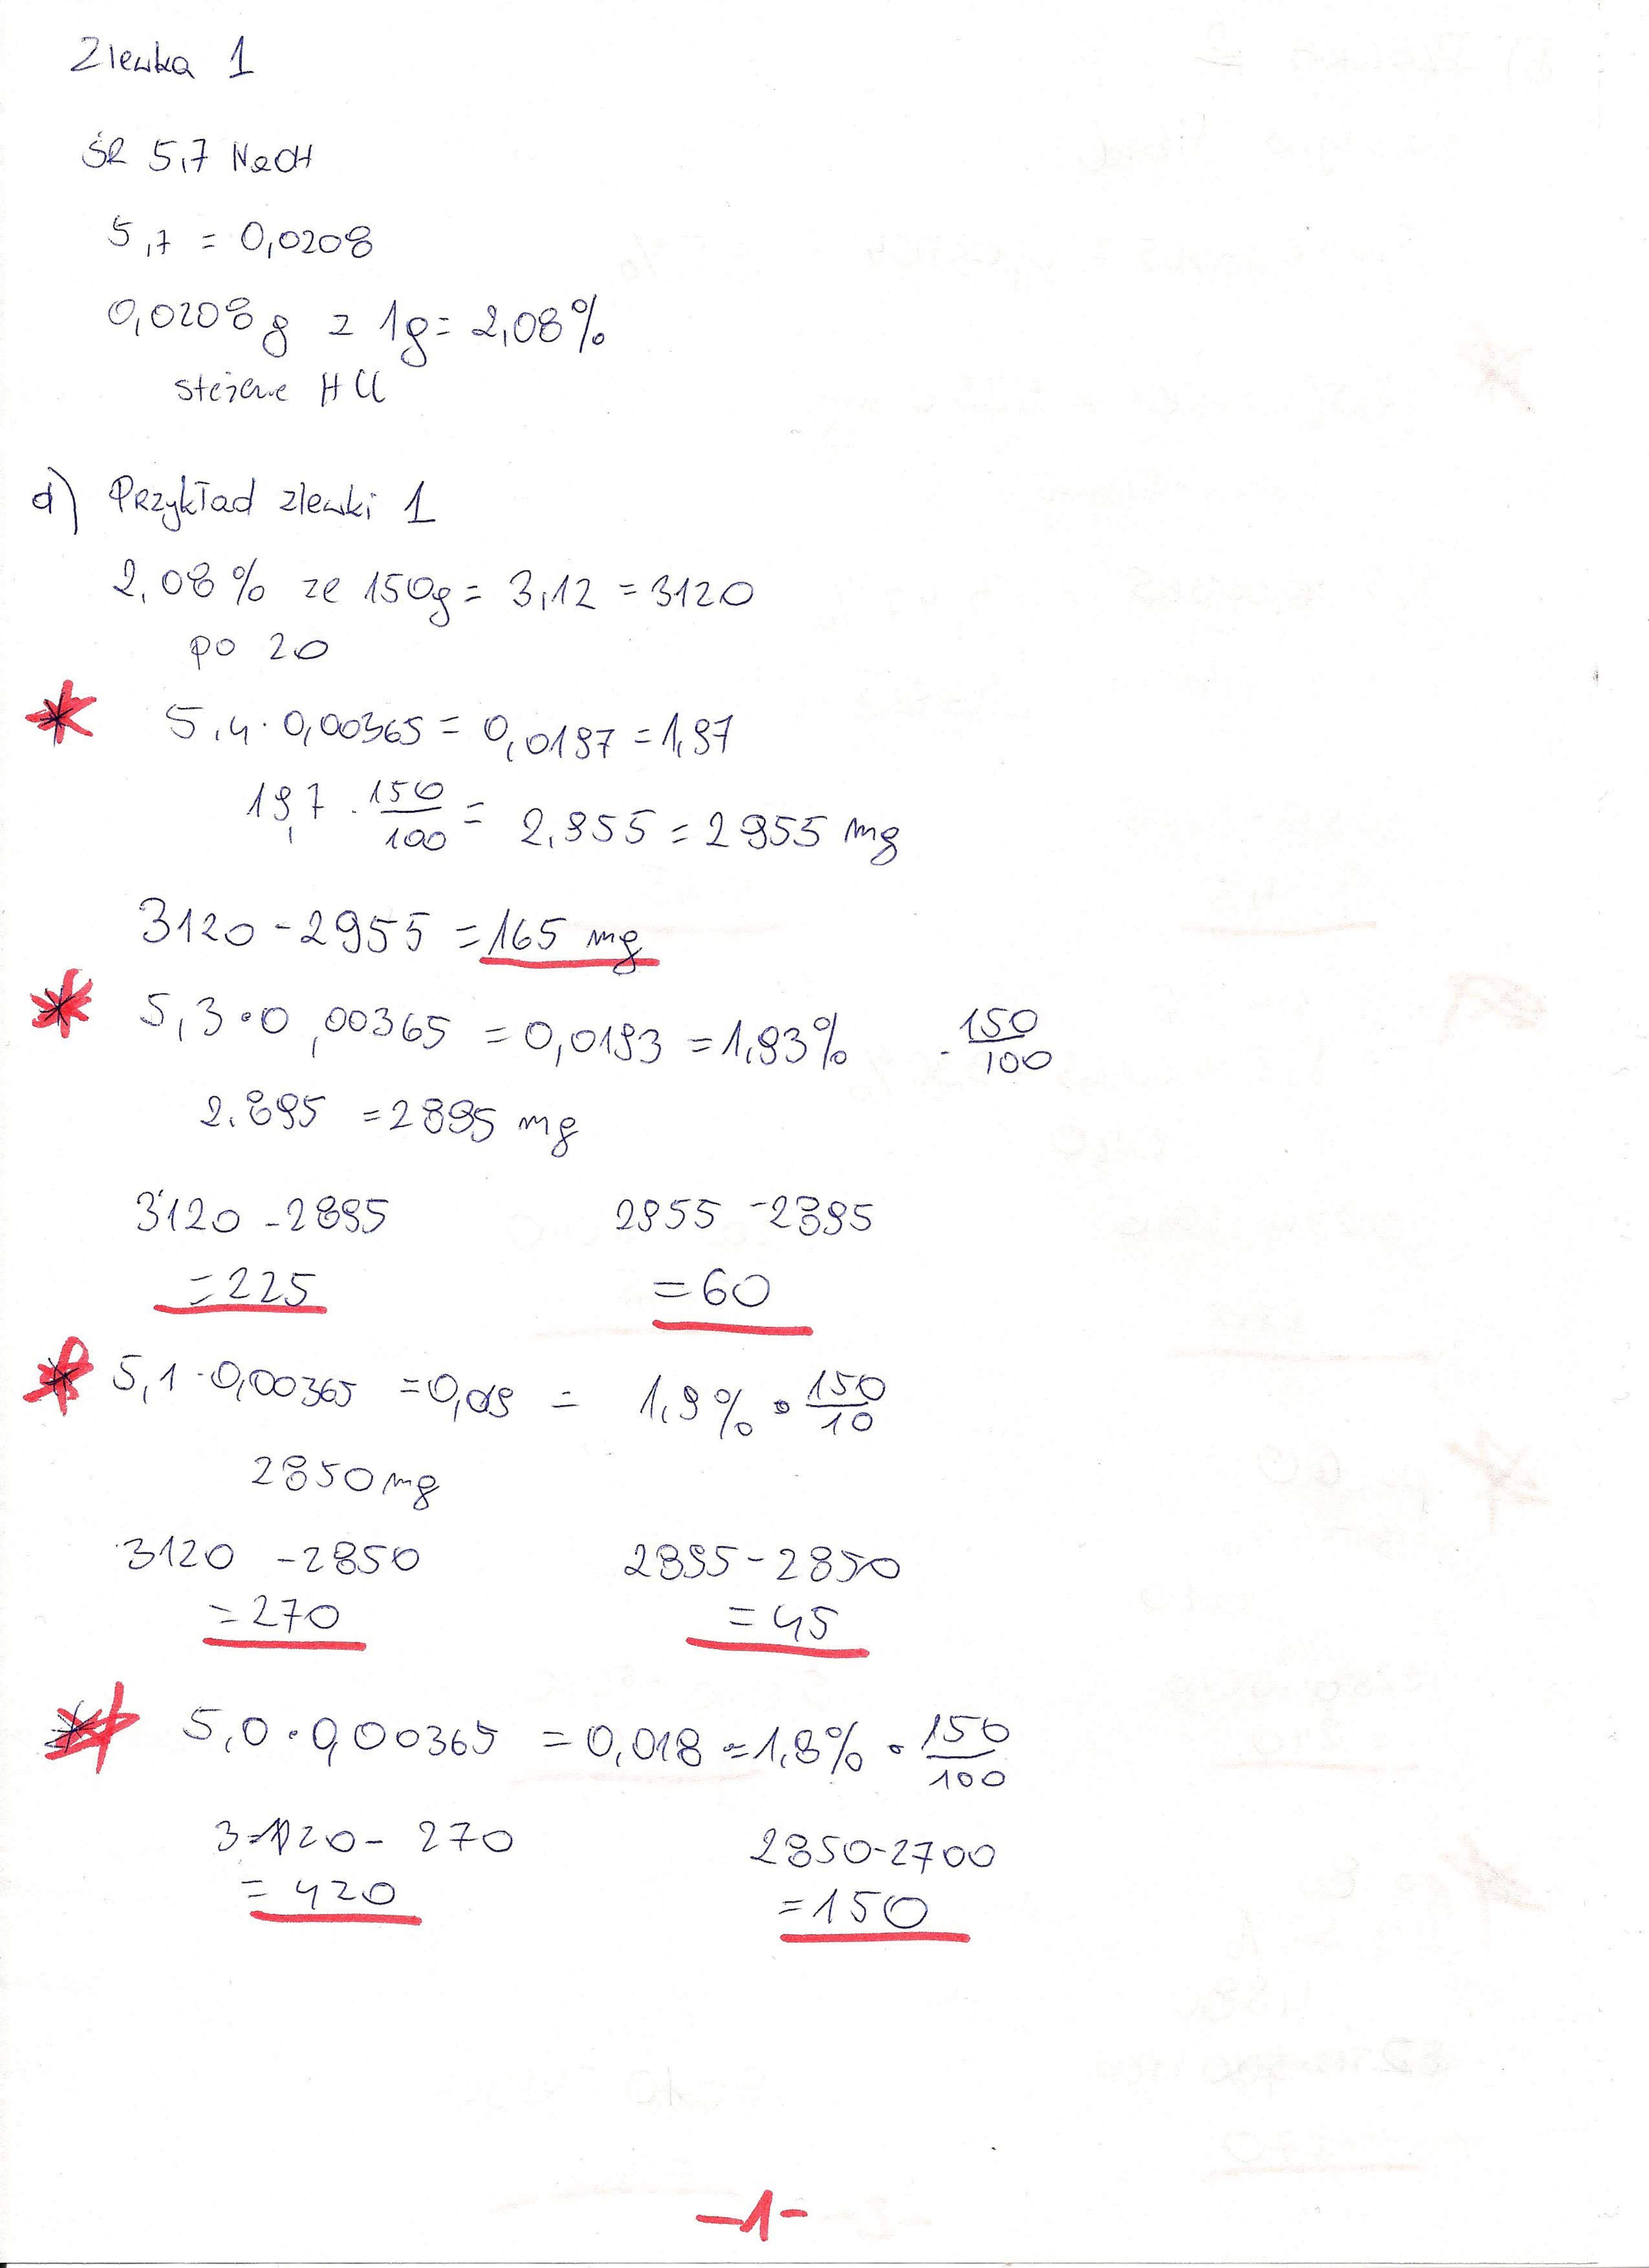 Zlewka 1
ŚR 5,7 NaOH
5,7 = 0,0208
0,0208g z 1g = 2,08%
stężenie HCl
d) Przykład zlewki 1
2,08% ze 150g = 3,12 = 3120
po 20
* 5,4 · 0,00365 = 0,0197 = 1,97
19,7 · 150/100 = 2,955 = 2955 mg
3120 - 2955 = 165 mg
* 5,3 · 0,00365 = 0,0193 = 1,93% · 150/100
2.895 = 2895 mg
3120 - 2895 2955 - 2895
= 225 = 60
* 5,1 · 0,00365 = 0,019 = 1,9% · 150/10
2850 mg
3120 - 2850 2895 - 2850
= 270 = 45
* 5,0 · 0,00365 = 0,018 = 1,8% · 150/100
3120 - 270 2850 - 2700
= 420 = 150
-1-